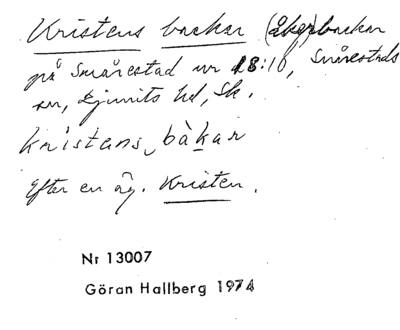 Kristens backar (åker)backar
på Smårestad nr 18:10, Smårestads
sn, Ljunits hd, Sk.
kristans bàkar
Efter en äg. Kristen.
Nr 13007
Göran Hallberg 1974